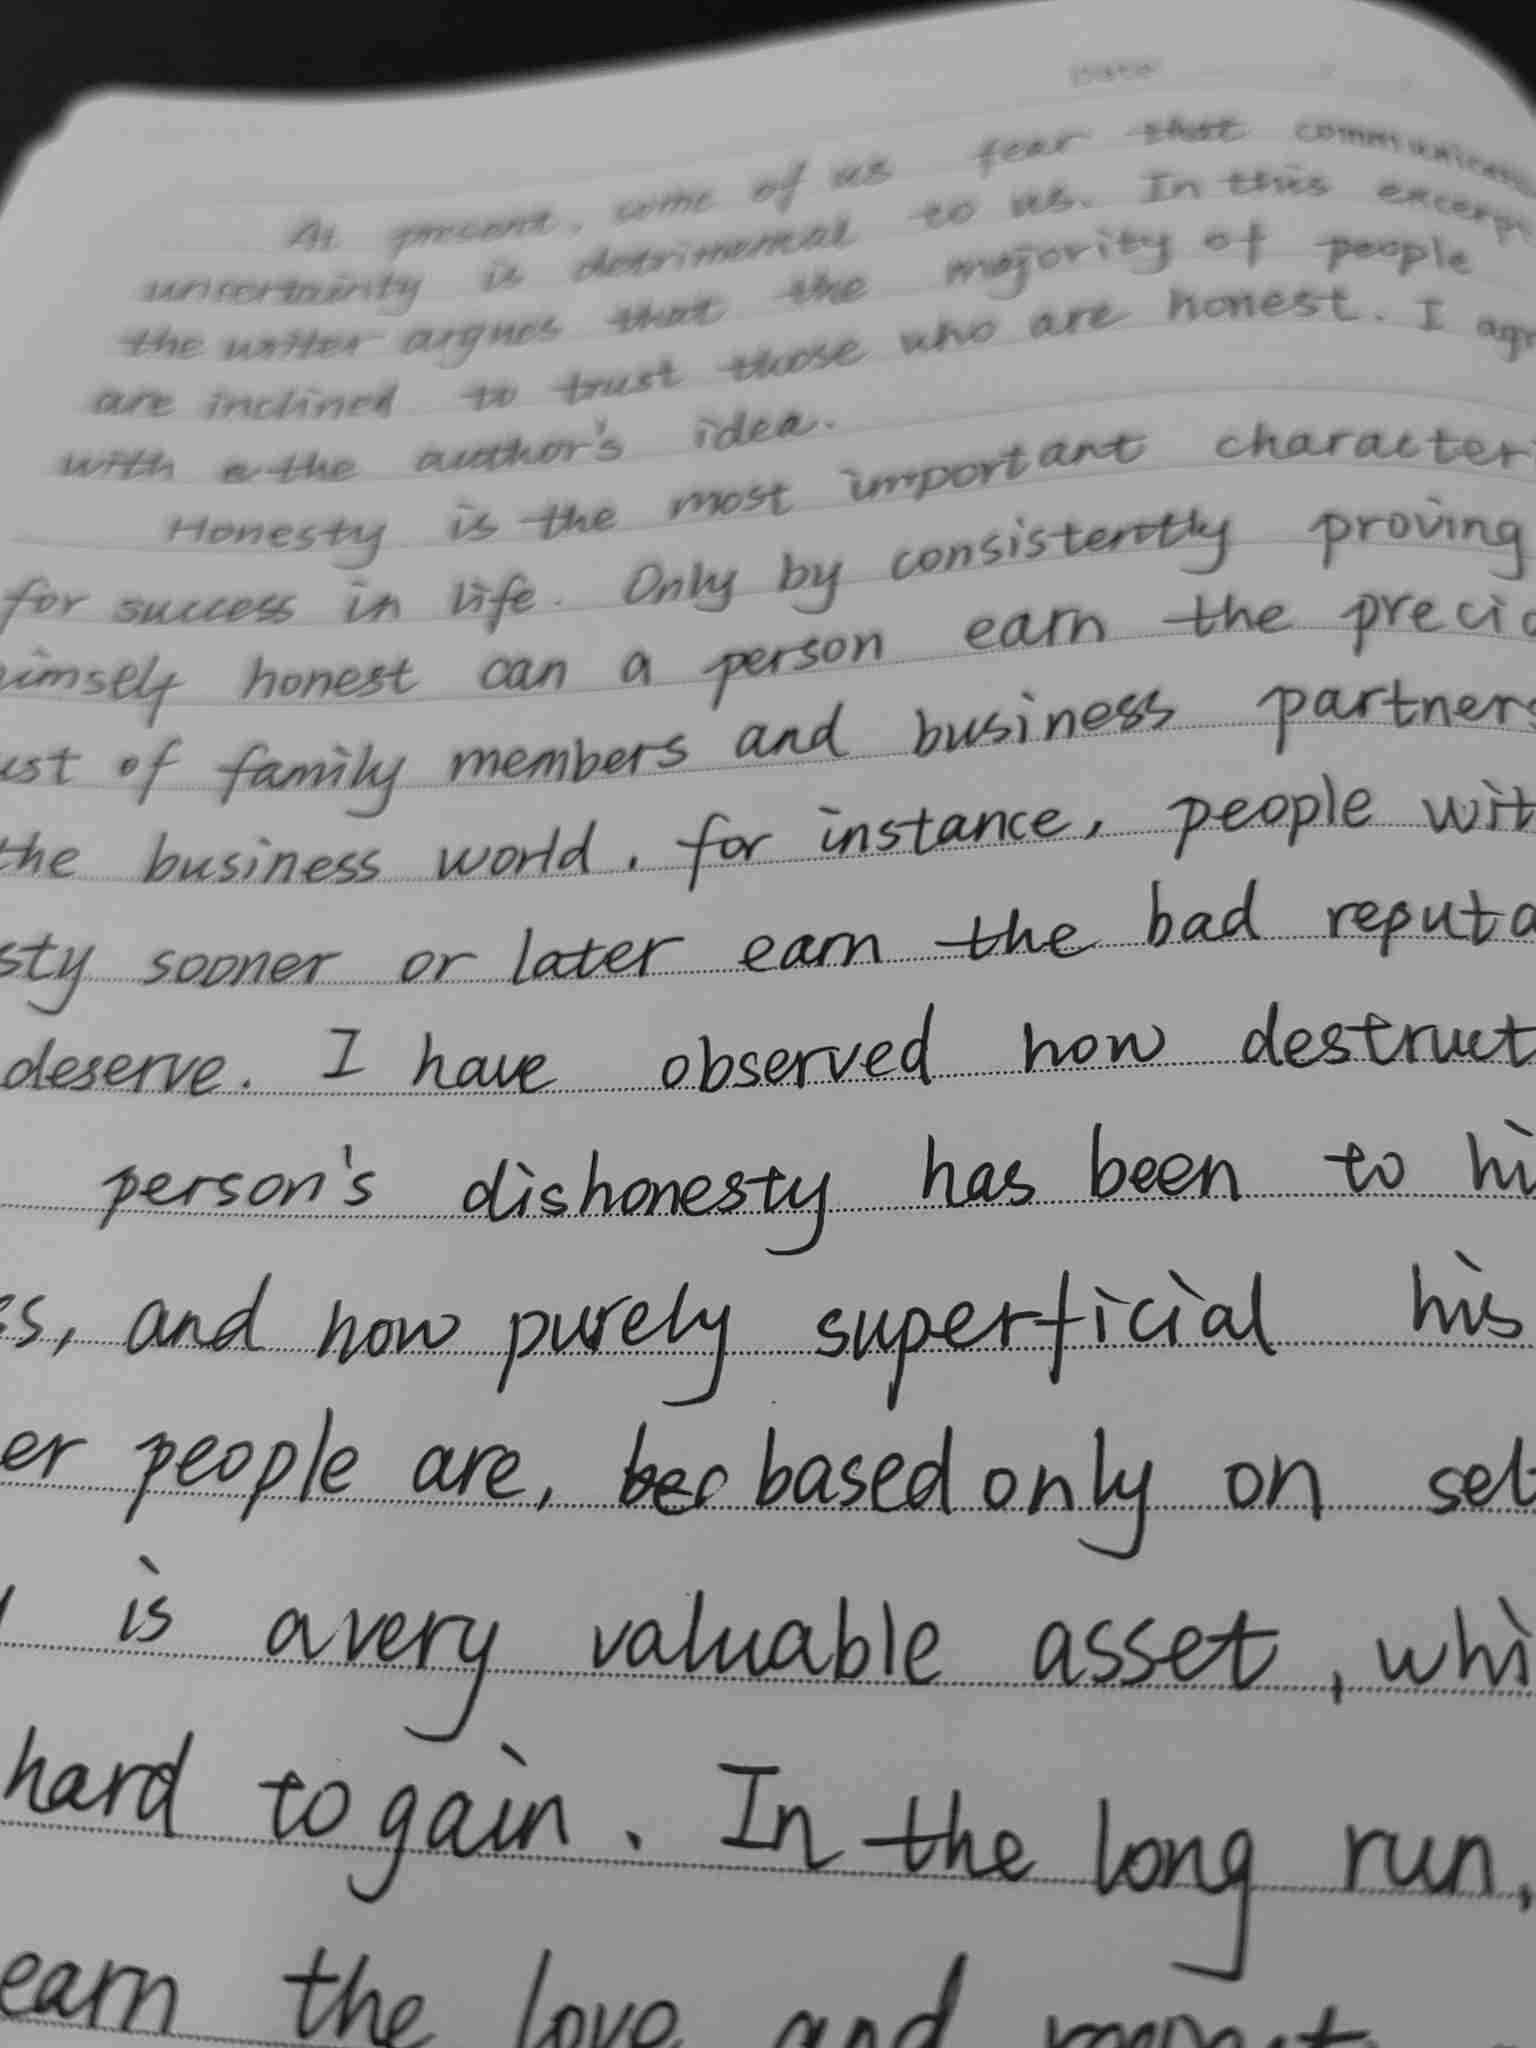 Date
At present, some of us fear that
uncertainty is detrimental to us. In this
the writer argues that the majority of people
are inclined to trust those who are honest. I
with the author's idea.
Honesty is the most important
for success in life. Only by consistently proving
himself honest can a person earn the
of family members and business partners
the business world. for instance, people
sooner or later earn the bad
deserve. I have observed how
person's dishonesty has been to
and how purely superficial his
people are, based only on
is a very valuable asset,
hard to gain. In the long run,
earn the love and